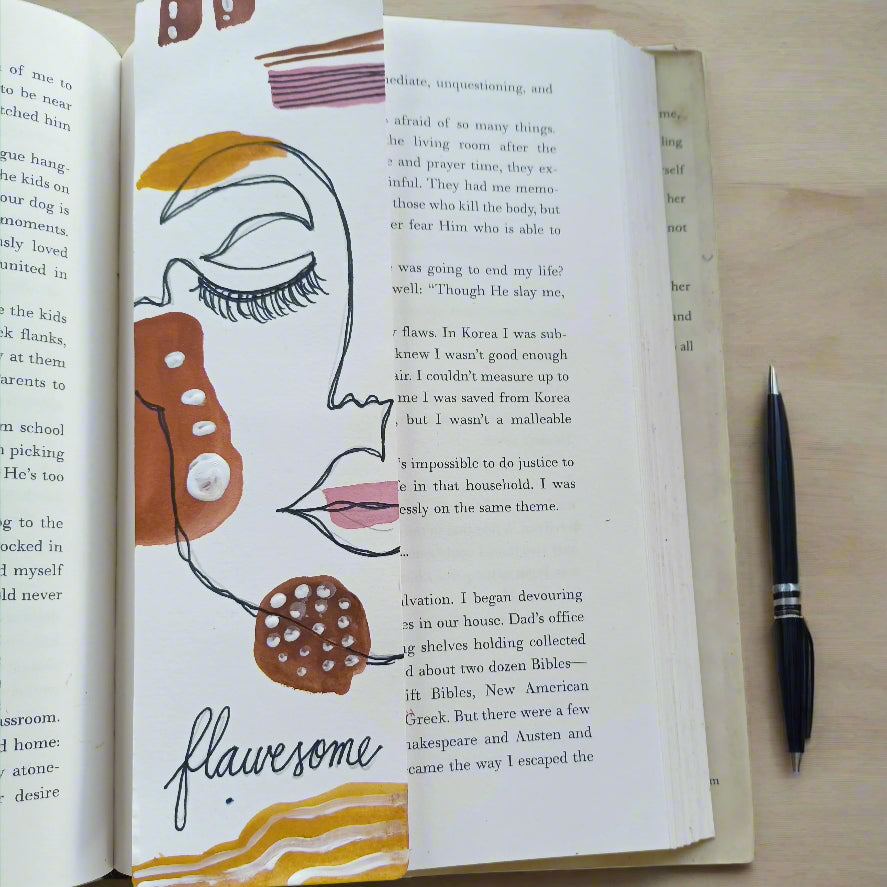 of me to
to be near
tched him
gue hang-
he kids on
our dog is
moments.
sly loved
united in
e the kids
ek flanks,
y at them
arents to
m school
n picking
He's too
og to the
ocked in
d myself
ld never
assroom.
d home:
y atone-
r desire
flawesome
mediate, unquestioning, and
afraid of so many things.
he living room after the
e and prayer time, they ex-
inful. They had me memo-
those who kill the body, but
er fear Him who is able to
was going to end my life?
well: "Though He slay me,
flaws. In Korea I was sub-
knew I wasn't good enough
air. I couldn't measure up to
me I was saved from Korea
, but I wasn't a malleable
's impossible to do justice to
e in that household. I was
essly on the same theme.
...
lvation. I began devouring
es in our house. Dad's office
ng shelves holding collected
d about two dozen Bibles—
ift Bibles, New American
Greek. But there were a few
hakespeare and Austen and
came the way I escaped the
me,
ling
self
her
not
her
and
all